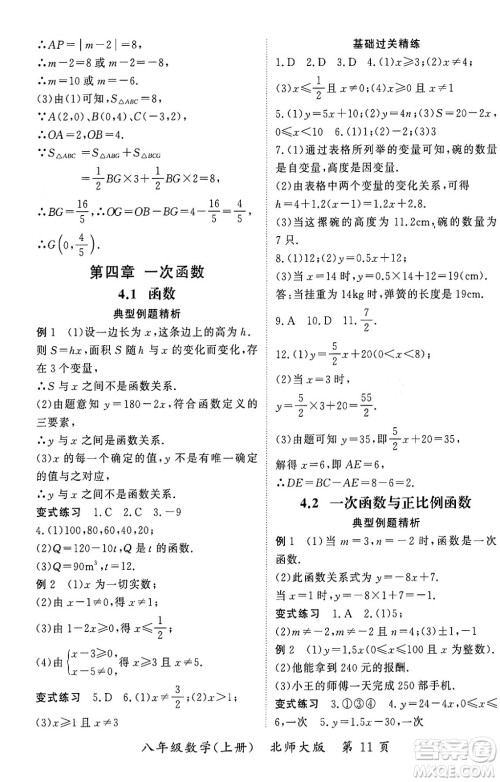 ∴AP=|m-2|=8
∴m-2=8或m-2=-8
∴m=10或m=-6.
(3)由(1)可知,S△ABC=8
∵A(2,0),B(0,4),
∴OA=2,OB=4.
∵S△ABC=S△ABG+S△BCG
=1/2 BG×3+1/2 BG×2=8
∴BG=16/5 ∴OG=OB-BG=4/5
∴G(0,4/5)
第四章 一次函数
4.1 函数
典型例题精析
例1 (1)设一边长为x,这条边上的高为h.
则S=1/2hx,S随h、x的变化而变化,存在
3个变量,
∴S与x之间不是函数关系.
(2)由题意知,y=180-2x,符合函数的
三要素,
∴y与x之间是函数关系.
(3)x的每一个确定的值,y都有两个确
定的值与之对应.
∴y与x之间不是函数关系.
变式练习 1.D 2.C 3.-9
4.(1)100,80,60,40,20;
(2)Q=120-10t,t的函数;
(3)Q=90m³,t=12.
例2 (1)x为一切实数;
(2)由x-4≠0.得x≠4;
(3)由x-3≥0.得x≥3;
(4)由{x-3≥0, x-5≠0.得x≥3且x≠5.
变式练习 5.D 6.(1)x≠3/2 (2)x>1
基础过关精练
1.D 2.D 3.D 4.(1)x≥3;(2)x≠4;
(3)x≤1/2且x≠0;(4)x≥1且x≠3
5.(1)y=5x+10;(2)y=4x;(3)S=20-2x,
0≤x<10 6.(1)-2;(2)-1
7.(1)通过表格所列举的变量可知,碗的数量
是自变量,高度是因变量.
(2)由表格中两个变量的变化关系可得,
h=4+1.2(x-1)=1.2x+2.8
答:整齐叠放在桌面上碗的高度h(cm)与
碗的数量x(只)之间的关系式为h=
1.2x+2.8
(3)当h=11.2cm时,即1.2x+2.8=11.2,
解得x=7,
答:当这摞碗的高度为11.2cm,碗的数量为
7只.
8.(1)12;(2)y=0.5x+12;
(3)当x=14时,y=0.5×14+12=19.
答:当所挂重物为14kg时,弹簧的长度是19cm.
9.A 10.D 11.7/2.
12.(1)y=5/2x(0≤x≤8)
(2)当x=3时,
y=5/2×3=15/2;
(3)当y=15时,即5/2x=15,
解得:x=6,即AE=6.
∴DE=BC-AE=8-6=2.
4.2 一次函数与正比例函数
典型例题精析
例1 (1)m=3,n=2;
(2)此函数关系式为y=6x,是正比例
函数.
变式练习 1.A 2.(1)5;
(2)m=-2,n≠-1;(3)m≠-2,n=-1
例2 (1)y=6x-300;
(2)他加工后拿到240元的报酬.
(3)小王的师傅一天加工了150个零件.
变式练习 3.①③④ 4.(1)5
一次
八年级数学(上册) 北师大版 第11页